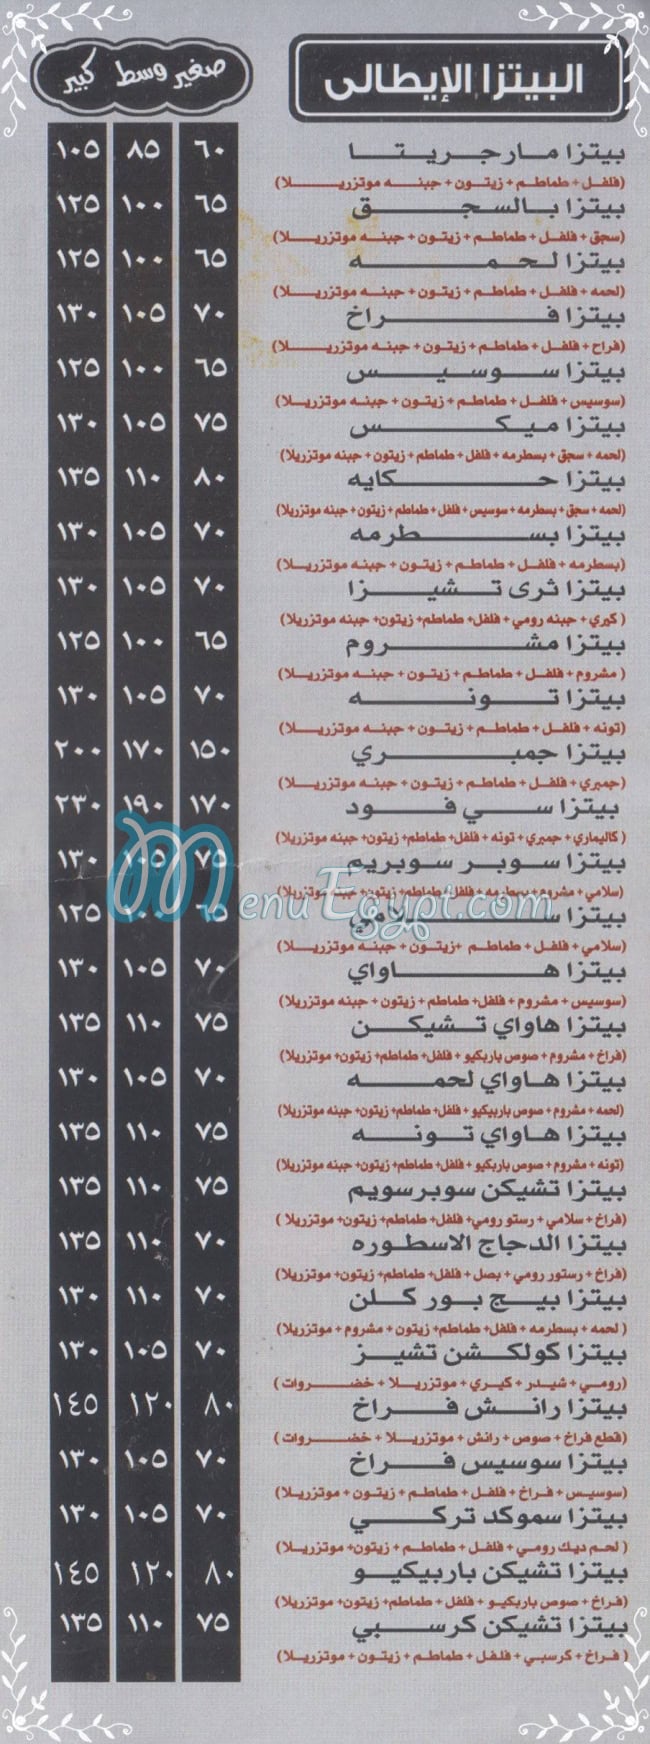 البيتزا الإيطالى
صغير وسط كبير
بيتزا مارجريتا ٦٠ ٨٥ ١٠٥
(فلفل + طماطم + زيتون + جبنه موتزريلا)
بيتزا بالسجق ٦٥ ١٠٠ ١٢٥
(سجق + فلفل + طماطم + زيتون + جبنه موتزريلا)
بيتزا لحمه ٦٥ ١٠٠ ١٢٥
(لحمه + فلفل + طماطم + زيتون + جبنه موتزريلا)
بيتزا فراخ ٧٠ ١٠٥ ١٣٠
(فراخ + فلفل + طماطم + زيتون + جبنه موتزريلا)
بيتزا سوسيس ٦٥ ١٠٠ ١٢٥
(سوسيس + فلفل + طماطم + زيتون + جبنه موتزريلا)
بيتزا ميكس ٧٥ ١٠٥ ١٣٠
(لحمه + سجق + بسطرمه + فلفل + طماطم + زيتون + جبنه موتزريلا)
بيتزا حكايه ٨٠ ١١٠ ١٣٥
(لحمه + سجق + بسطرمه + سوسيس + فلفل + طماطم + زيتون + جبنه موتزريلا)
بيتزا بسطرمه ٧٠ ١٠٥ ١٣٠
(بسطرمه + فلفل + طماطم + زيتون + جبنه موتزريلا)
بيتزا ثرى تشيزا ٧٠ ١٠٥ ١٣٠
( كيري + جبنه رومي + فلفل+ طماطم+ زيتون+ جبنه موتزريلا)
بيتزا مشروم ٦٥ ١٠٠ ١٢٥
( مشروم + فلفل + طماطم + زيتون + جبنه موتزريلا)
بيتزا تونه ٧٠ ١٠٥ ١٣٠
(تونه + فلفل + طماطم + زيتون + جبنه موتزريلا)
بيتزا جمبري ١٥٠ ١٧٠ ٢٠٠
(جمبري + فلفل + طماطم + زيتون + جبنه موتزريلا)
بيتزا سي فود ١٧٠ ١٩٠ ٢٣٠
( كاليماري + جمبري + تونه + فلفل+ طماطم+ زيتون+ جبنه موتزريلا)
بيتزا سوبر سوبريم ٧٥ ١٠٥ ١٣٠
(سلامي + مشروم + بسطرمه + فلفل+ طماطم+ زيتون+ جبنه موتزريلا)
بيتزا سلامي ٦٥ ١٠٠ ١٢٥
(سلامي + فلفل + طماطم +زيتون + جبنه موتزريلا)
بيتزا هاواي ٧٠ ١٠٥ ١٣٠
(سوسيس + مشروم + فلفل+ طماطم + زيتون + جبنه موتزريلا)
بيتزا هاواي تشيكن ٧٥ ١١٠ ١٣٥
(فراخ + مشروم + صوص باربكيو + فلفل+ طماطم+ زيتون+ موتزريلا)
بيتزا هاواي لحمه ٧٠ ١٠٥ ١٣٠
(لحمه + مشروم + صوص باربيكيو + فلفل+ طماطم+ زيتون+ جبنه موتزريلا)
بيتزا هاواي تونه ٧٥ ١١٠ ١٣٥
(تونه + مشروم + صوص باربكيو + فلفل+ طماطم+ زيتون+ جبنه موتزريلا)
بيتزا تشيكن سوبرسويم ٧٥ ١١٠ ١٣٥
(فراخ + سلامي + رستو رومي+ فلفل+ طماطم+ زيتون+ موتزريلا )
بيتزا الدجاج الاسطوره ٧٠ ١١٠ ١٣٥
(فراخ + رستور رومي + بصل + فلفل+ طماطم+ زيتون+ موتزريلا)
بيتزا بيج بور كلن ٧٠ ١١٠ ١٣٠
( لحمه + بسطرمه + فلفل+ طماطم+ زيتون + مشروم + موتزريلا)
بيتزا كولكشن تشيز ٧٠ ١٠٥ ١٣٠
(رومي + شيدر + كيري + موتزريلا + خضروات )
بيتزا رانش فراخ ٨٠ ١٢٠ ١٤٥
(قطع فراخ + صوص + رانش + موتزريلا + خضروات )
بيتزا سوسيس فراخ ٧٠ ١٠٥ ١٣٠
(سوسيس + فراخ + فلفل + طماطم + زيتون + موتزريلا)
بيتزا سموكد تركي ٧٠ ١٠٥ ١٣٠
( لحم ديك رومي + فلفل + طماطم + زيتون+ موتزريلا)
بيتزا تشيكن باربيكيو ٨٠ ١٢٠ ١٤٥
(فراخ + صوص باربكيو + فلفل + طماطم+ زيتون+ موتزريلا)
بيتزا تشيكن كرسبي ٧٥ ١١٠ ١٣٥
( فراخ + كرسبي + فلفل + طماطم + زيتون + موتزريلا)
MenuEgypt.com